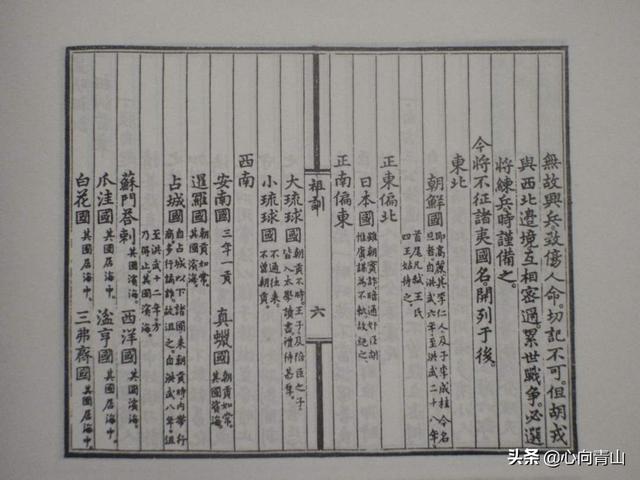 無故興兵致傷人命。切記不可。但胡戎
與西北邊境互相密邇。累世戰爭。必選
將練兵時謹備之。
今將不征諸夷國名。開列于後。
東北
朝鮮國 即高麗其李仁人及子李成桂今名
旦者。自洪武六年至洪武二十八年。
首尾凡弑王氏
四王姑待之。
正東偏北
日本國 雖朝貢詐暗通奸臣胡
惟庸謀為不軌故絕之。
正南偏東
祖訓
六
大琉球國 朝貢不時。王子及陪臣之子
皆入太學讀書禮待甚厚。
小琉球國 不通往來。
不曾朝貢。
西南
安南國 三年一貢
真蠟國 朝貢如常。
其國濱海。
暹羅國 朝貢如常。
其國濱海。
占城國 自占城以下諸國來朝貢時內帶行
商多行譎詐故沮之。自洪武八年沮
至洪武十二年方
乃得止其國濱海。
蘇門荅剌 其國濱海。
西洋國 其國濱海。
爪洼國 其國居海中。
湓亨國 其國居海中。
白花國 其國居海中。
三弗齋國 其國居海中。
头条 @心向青山